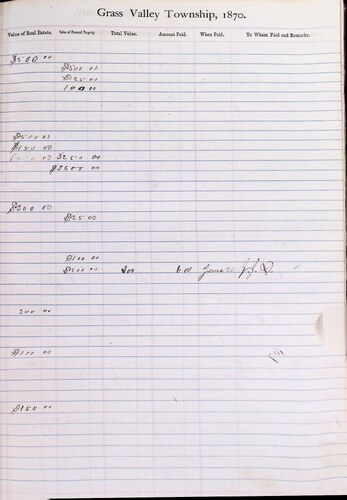 Grass Valley Township, 1870.
Value of Real Estate. Value of Personal Property. Total Value. Amount Paid. When Paid. To Whom Paid and Remarks.
$500 00
$500 00
$25 00
100 00
$500 00
$150 00
$250 00
$2500 00
$200 00
$25 00
$100 00
$200 00 6 00 June
200 00
$100 00
$150 00